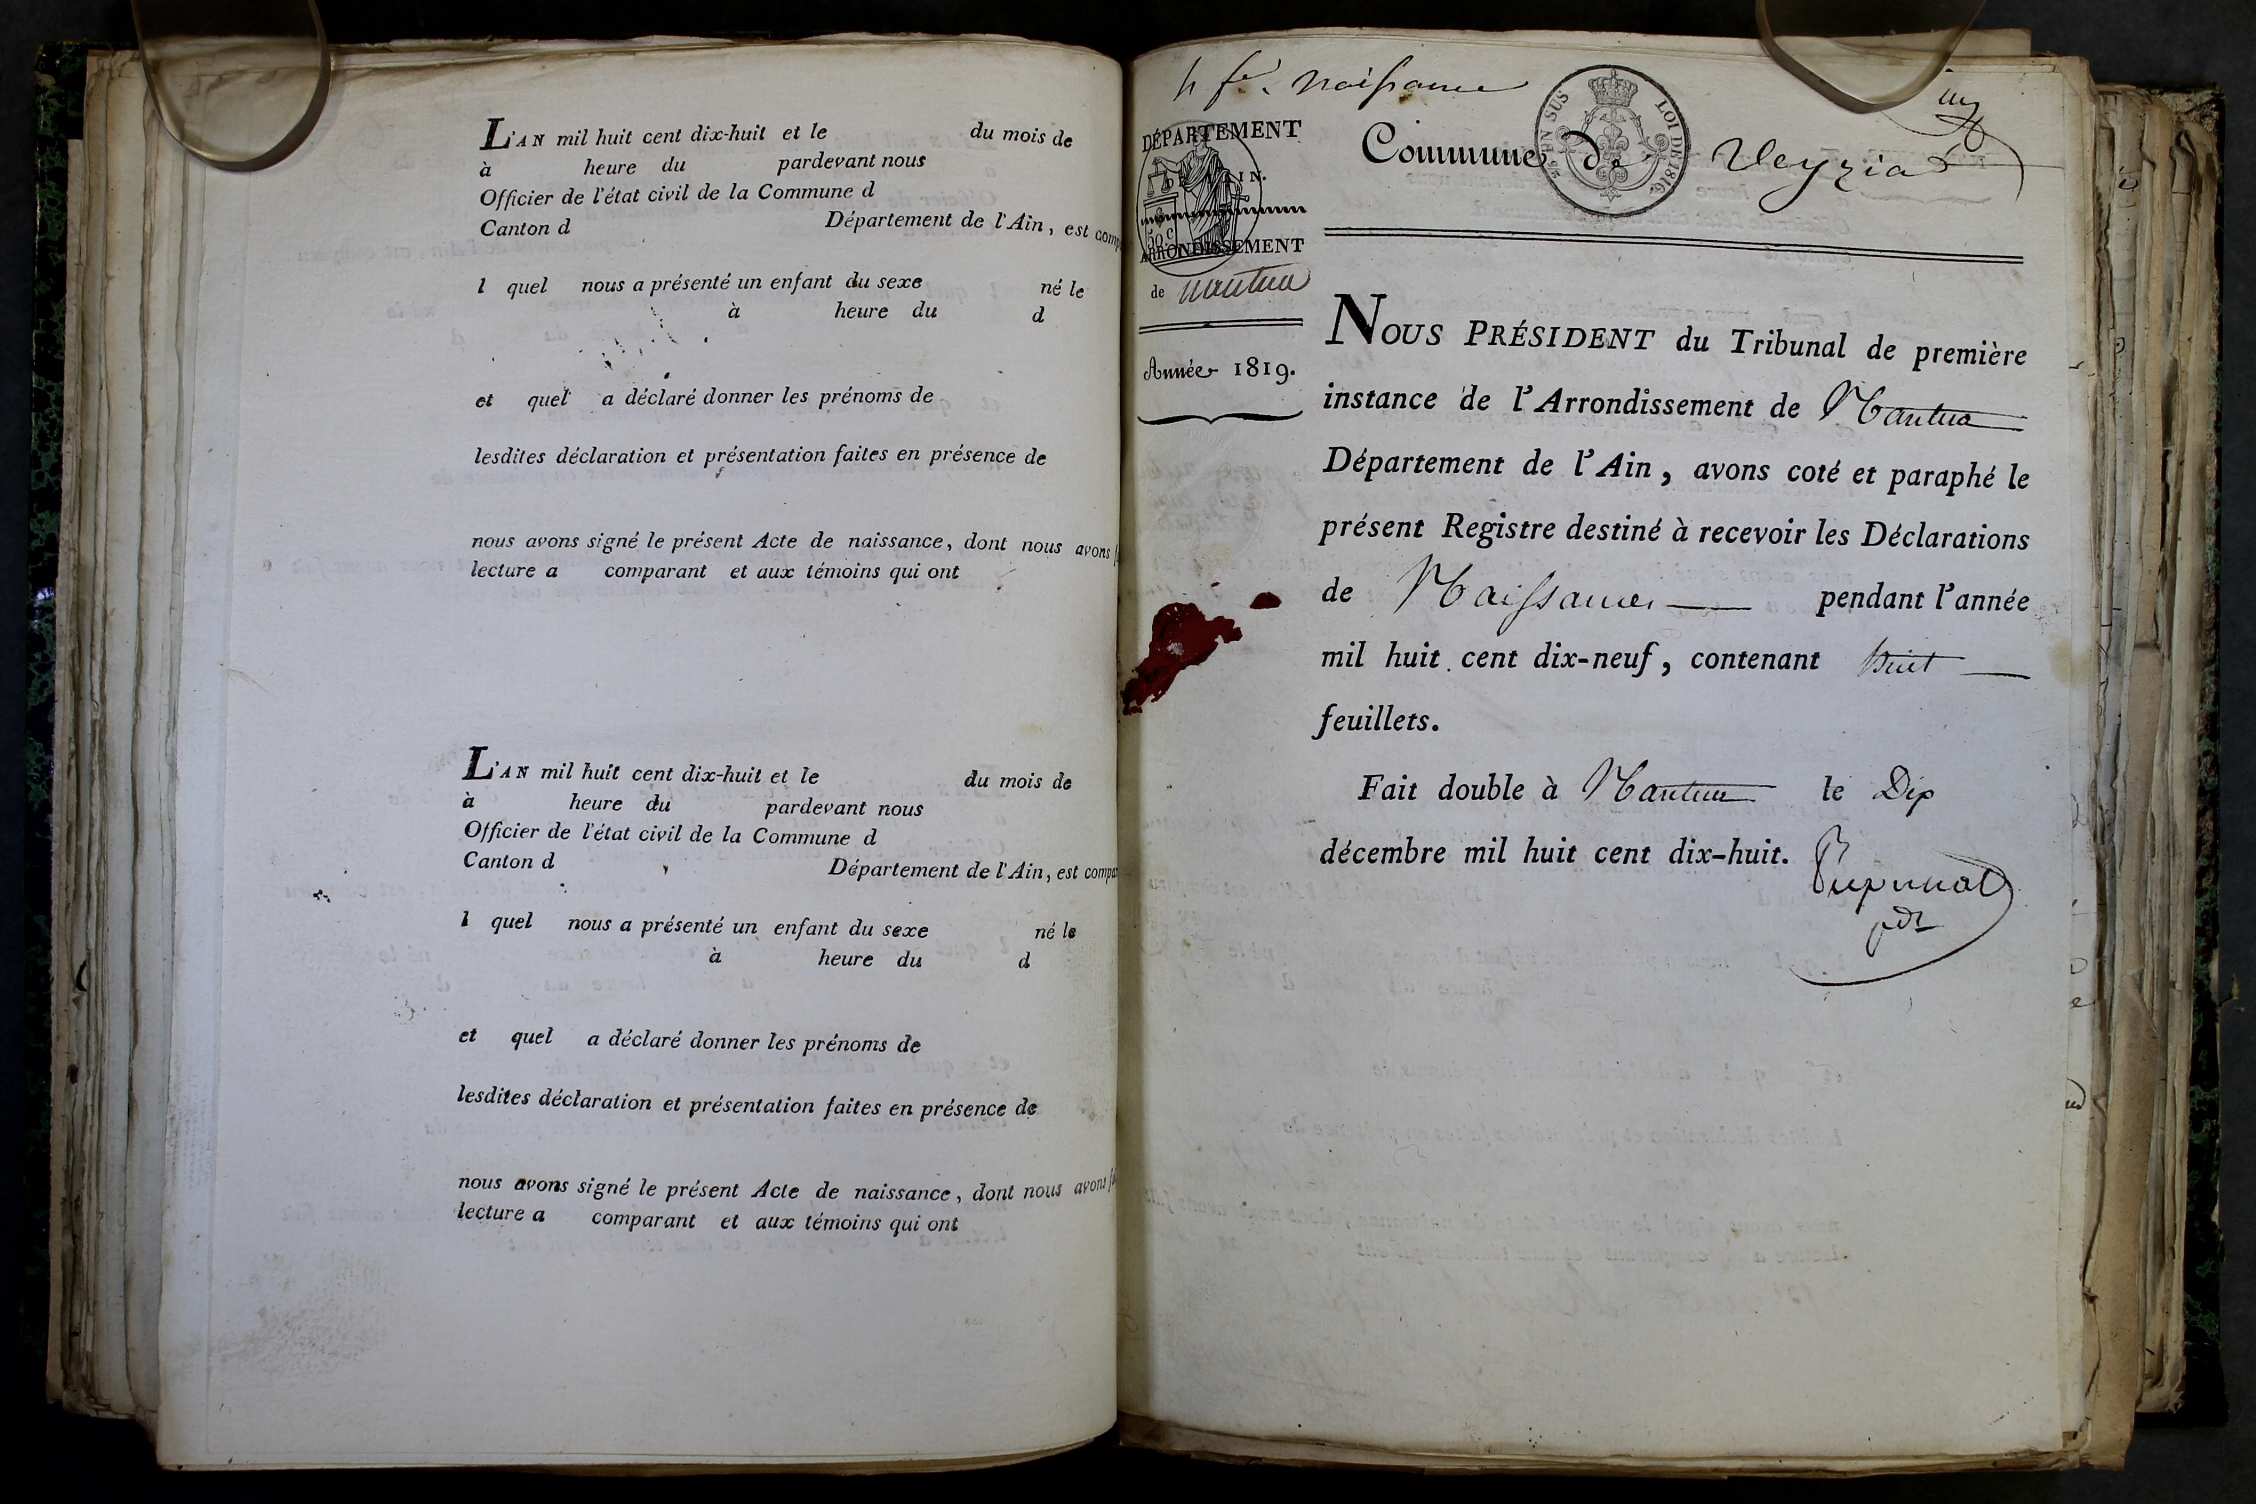 L'AN mil huit cent dix-huit et le du mois de
à heure du pardevant nous
Officier de l'état civil de la Commune d
Canton d Département de l'Ain, est comp
l quel nous a présenté un enfant du sexe né le
à heure du d
et quel a déclaré donner les prénoms de
lesdites déclaration et présentation faites en présence de
nous avons signé le présent Acte de naissance, dont nous avons f
lecture a comparant et aux témoins qui ont
L'AN mil huit cent dix-huit et le du mois de
à heure du pardevant nous
Officier de l'état civil de la Commune d
Canton d Département de l'Ain, est compa
l quel nous a présenté un enfant du sexe né le
à heure du d
et quel a déclaré donner les prénoms de
lesdites déclaration et présentation faites en présence de
nous avons signé le présent Acte de naissance, dont nous avons fai
lecture a comparant et aux témoins qui ont
naissance
DÉPARTEMENT
DE L'AIN.
50 c
ARRONDISSEMENT
de nantua
Année 1819.
EN SUS LOI DE 1816.
Commune de Veyziat
NOUS PRÉSIDENT du Tribunal de première
instance de l'Arrondissement de Nantua
Département de l'Ain, avons coté et paraphé le
présent Registre destiné à recevoir les Déclarations
de Naissances pendant l'année
mil huit cent dix-neuf, contenant huit
feuillets.
Fait double à Nantua le Dix
décembre mil huit cent dix-huit.
pdt